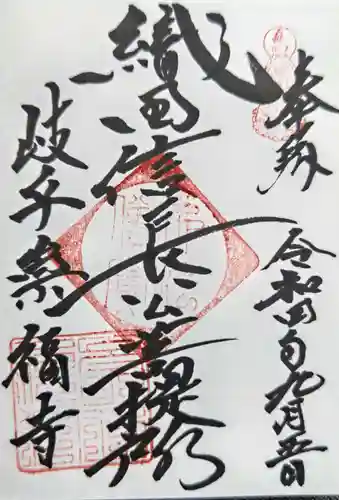 奉拝
令和四年九月五日
織田信長公菩提所
岐阜崇福寺